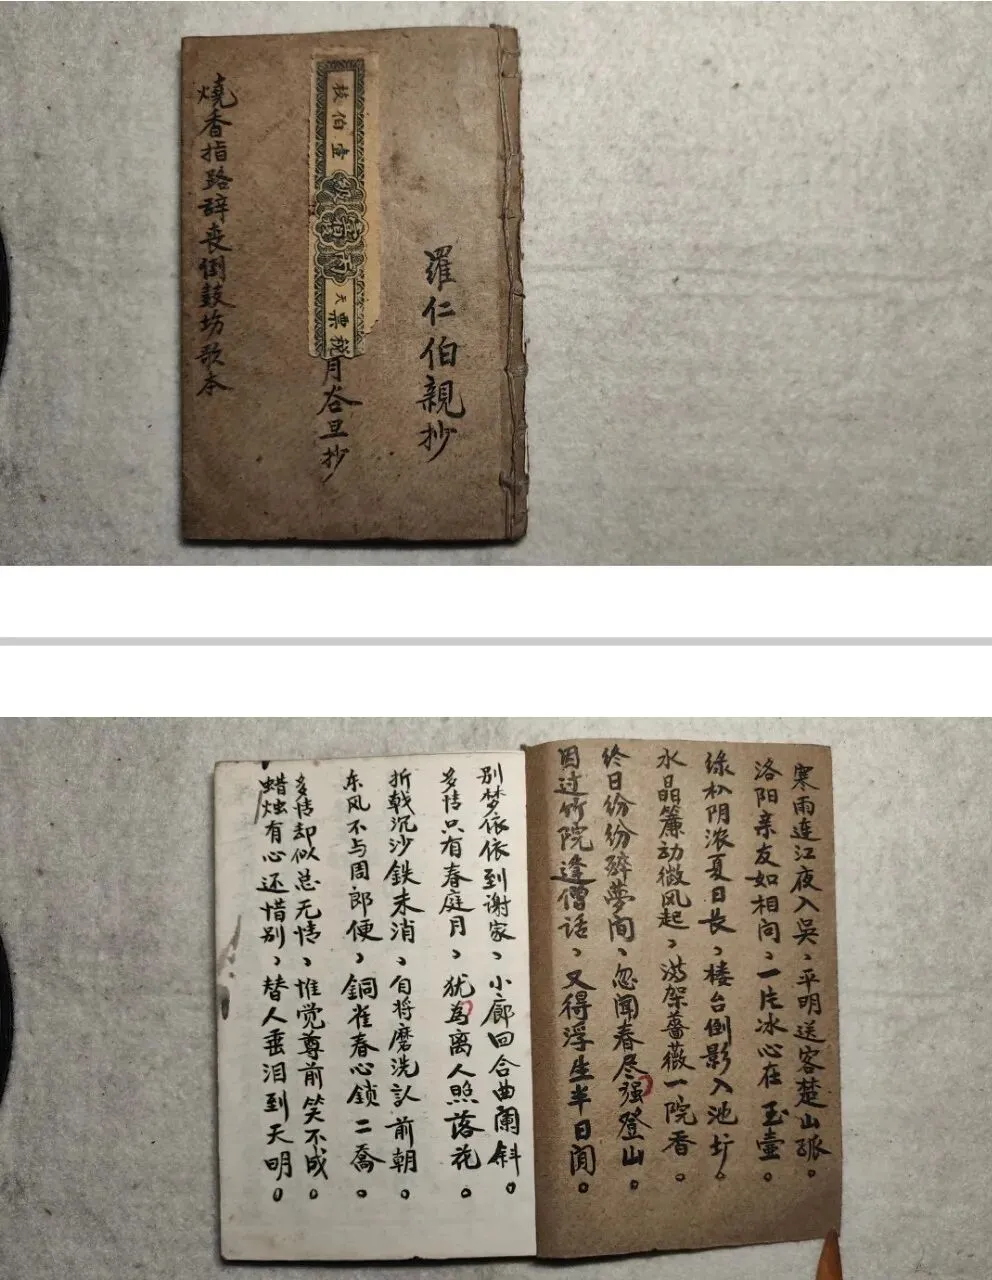 羅仁伯親抄
枝伯壹
票税
月谷旦抄
燒香指路辞丧倒鼓坊歌本
寒雨连江夜入吳、平明送客楚山孤。
洛阳亲友如相问、一片冰心在玉壶。
绿松阴浓夏日长、楼台倒影入池圢。
水晶簾动微风起、满架薔薇一院香。
终日纷纷醉夢间、忽闻春尽强登山。
因过竹院逢僧话、又得浮生半日闲。
别梦依依到谢家、小廊回合曲阑斜。
多情只有春庭月、犹為离人照落花。
折戟沉沙鉄未消、自将磨洗认前朝。
东风不与周郎便、銅雀春心鎖二喬。
多情却似总无情、惟觉尊前笑不成。
蜡烛有心还惜别、替人垂泪到天明。